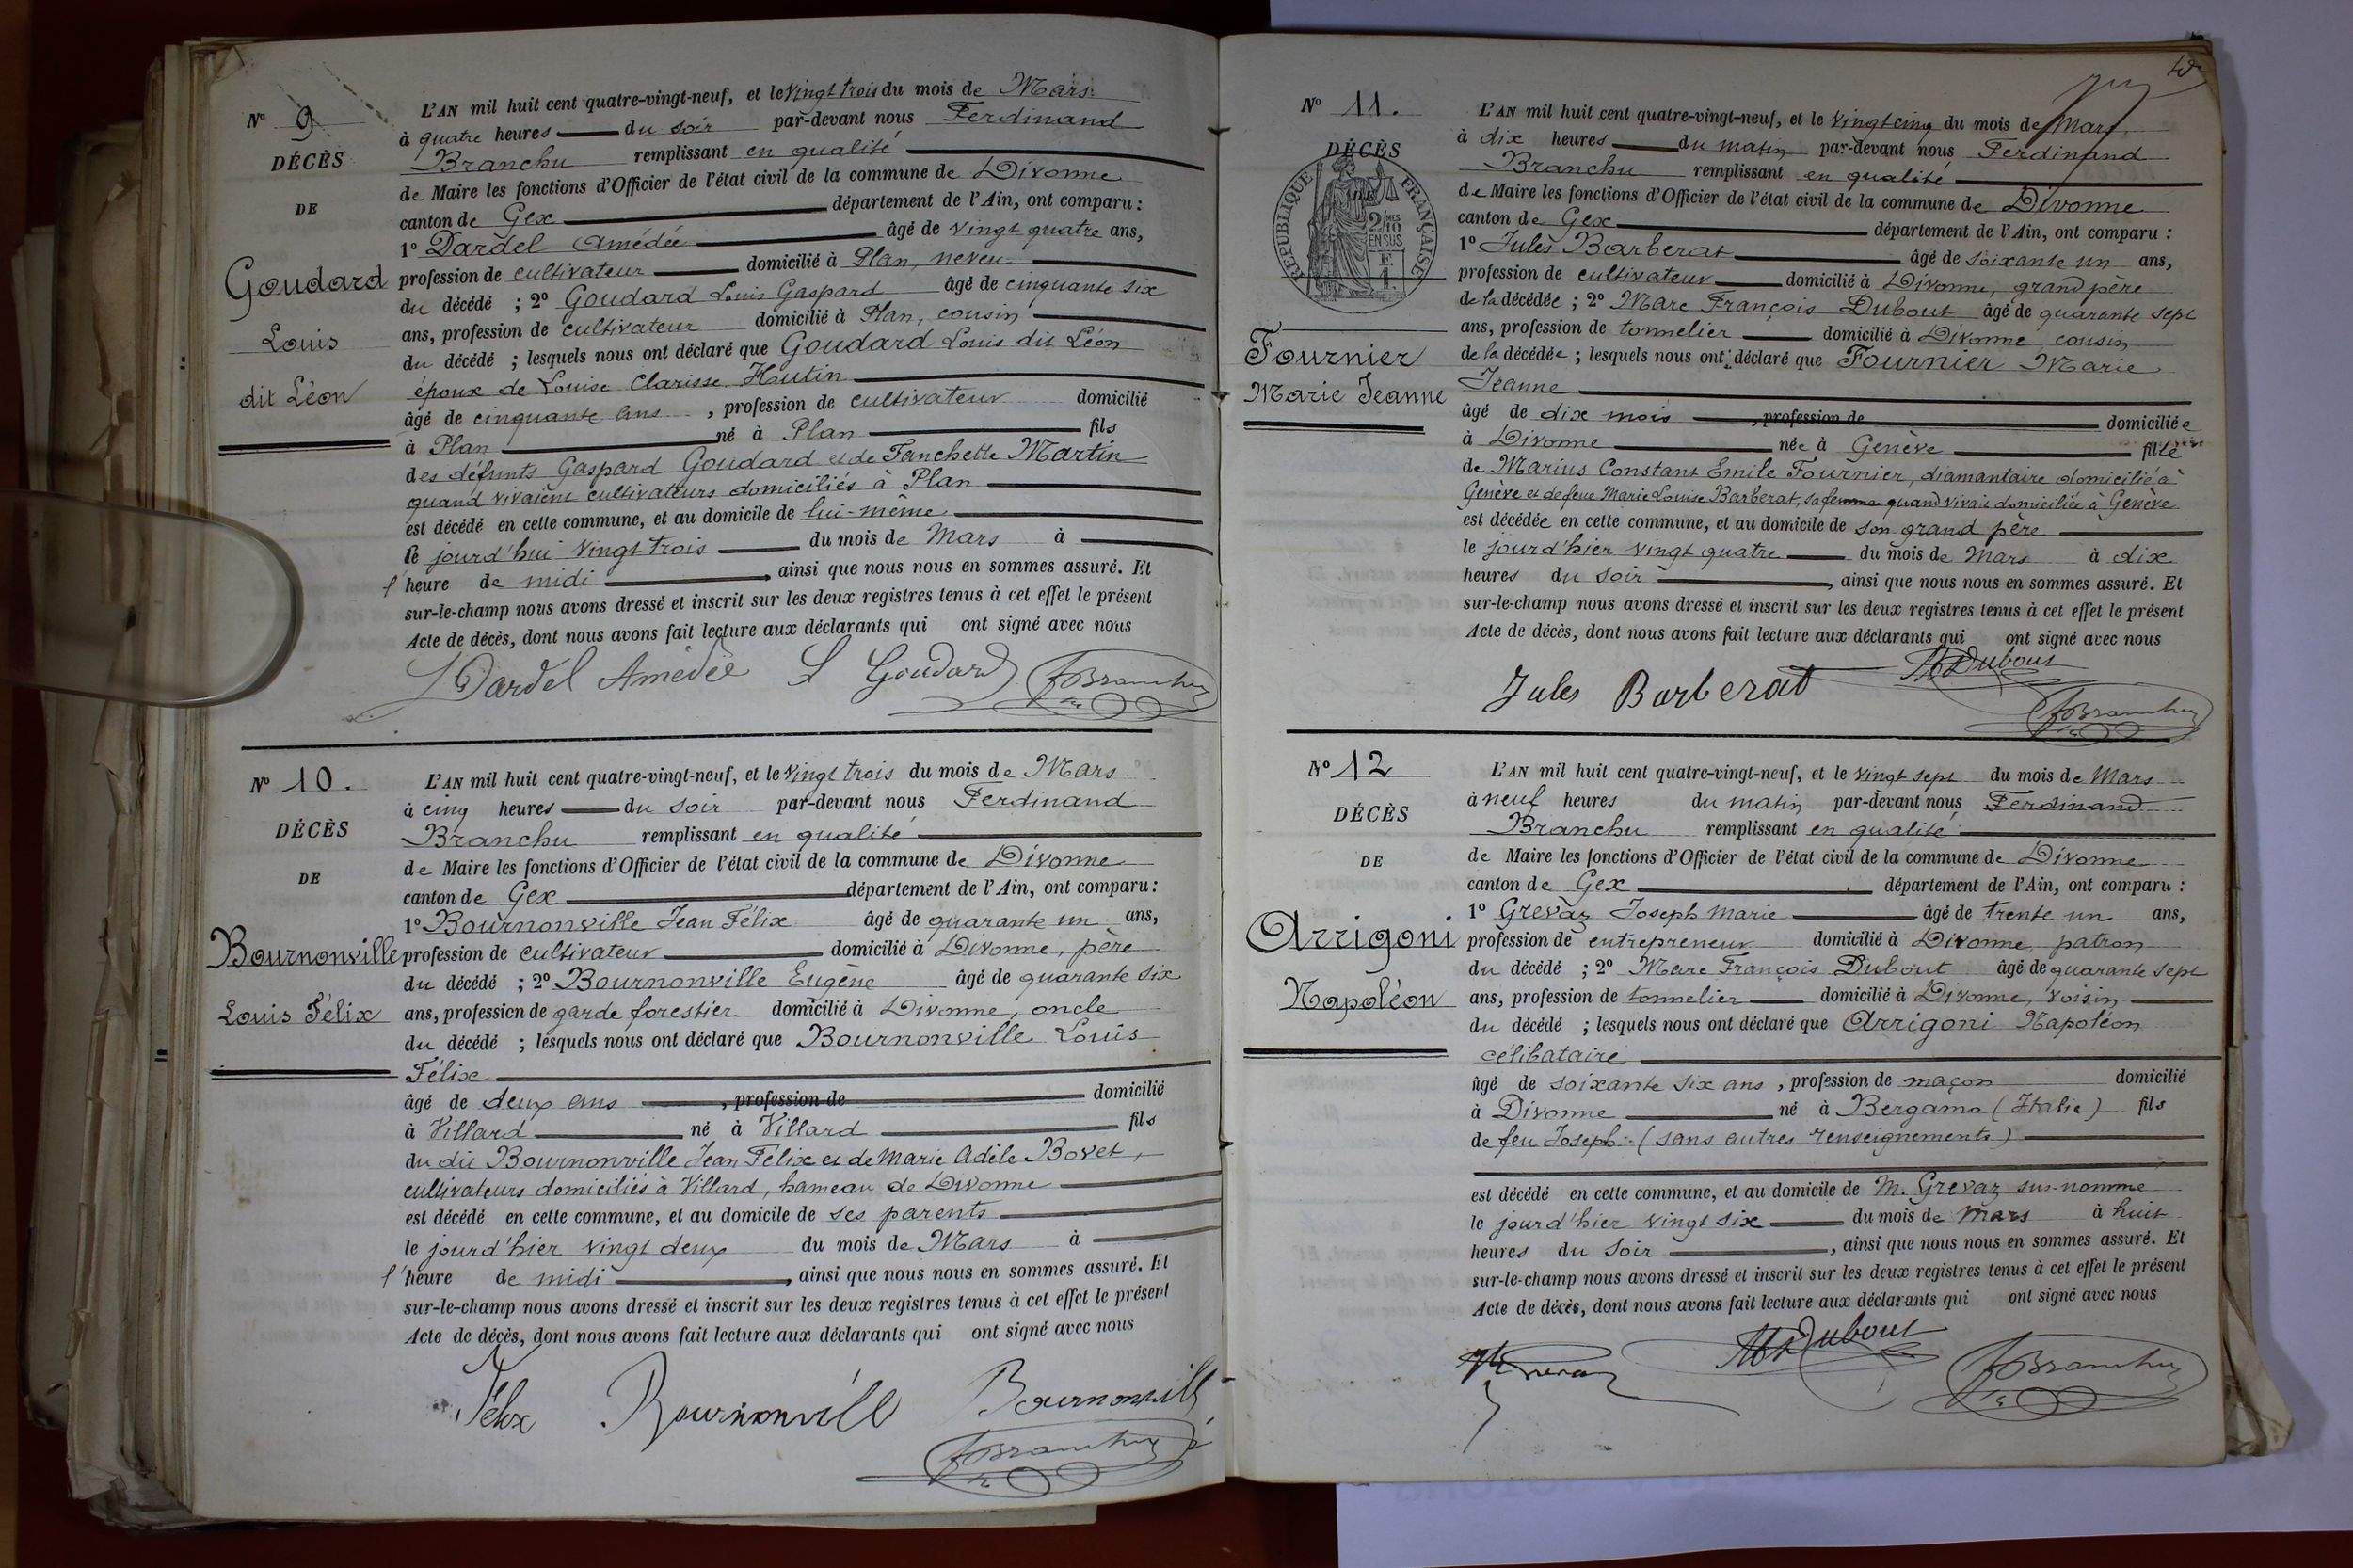 N° 9
DÉCÈS
DE
Goudard
Louis
dit Léon
L'AN mil huit cent quatre-vingt-neuf, et le vingt trois du mois de Mars
à quatre heures du soir par-devant nous Ferdinand
Branchu remplissant en qualité
de Maire les fonctions d'Officier de l'état civil de la commune de Divonne
canton de Gex département de l'Ain, ont comparu :
1° Dardel Amédée âgé de vingt quatre ans,
profession de cultivateur domicilié à Plan, neveu
du décédé ; 2° Goudard Louis Gaspard âgé de cinquante six
ans, profession de cultivateur domicilié à Plan, cousin
du décédé ; lesquels nous ont déclaré que Goudard Louis dit Léon
époux de Louise Clarisse Houtin
âgé de cinquante ans , profession de cultivateur domicilié
à Plan né à Plan fils
des défunts Gaspard Goudard et de Fanchette Martin
quand vivaient cultivateurs domiciliés à Plan
est décédé en cette commune, et au domicile de lui-même
le jourd'hui vingt trois du mois de Mars à
l'heure de midi , ainsi que nous nous en sommes assuré. Et
sur-le-champ nous avons dressé et inscrit sur les deux registres tenus à cet effet le présent
Acte de décès, dont nous avons fait lecture aux déclarants qui ont signé avec nous
Dardel Amédée L Goudard FBranchu
N° 10.
DÉCÈS
DE
Bournonville
Louis Félix
L'AN mil huit cent quatre-vingt-neuf, et le vingt trois du mois de Mars
à cinq heures du soir par-devant nous Ferdinand
Branchu remplissant en qualité
de Maire les fonctions d'Officier de l'état civil de la commune de Divonne
canton de Gex département de l'Ain, ont comparu :
1° Bournonville Jean Félix âgé de quarante un ans,
profession de cultivateur domicilié à Divonne, père
du décédé ; 2° Bournonville Eugène âgé de quarante six
ans, profession de garde forestier domicilié à Divonne, oncle
du décédé ; lesquels nous ont déclaré que Bournonville Louis
Félix
âgé de deux ans , profession de domicilié
à Villard né à Villard fils
du dit Bournonville Jean Félix et de Marie Adèle Bovet,
cultivateurs domiciliés à Villard, hameau de Divonne
est décédé en cette commune, et au domicile de ses parents
le jourd'hier vingt deux du mois de Mars à
l'heure de midi , ainsi que nous nous en sommes assuré. Et
sur-le-champ nous avons dressé et inscrit sur les deux registres tenus à cet effet le présent
Acte de décès, dont nous avons fait lecture aux déclarants qui ont signé avec nous
Félix Bournonvill Bournonvill
FBranchu
N° 11.
DÉCÈS
DE
RÉPUBLIQUE FRANÇAISE
2/10MES
EN SUS
Fournier
Marie Jeanne
L'AN mil huit cent quatre-vingt-neuf, et le vingt cinq du mois de Mars
à dix heures du matin par-devant nous Ferdinand
Branchu remplissant en qualité
de Maire les fonctions d'Officier de l'état civil de la commune de Divonne
canton de Gex département de l'Ain, ont comparu :
1° Jules Barberat âgé de soixante un ans,
profession de cultivateur domicilié à Divonne, grand père
de la décédée ; 2° Marc François Dubout âgé de quarante sept
ans, profession de tonnelier domicilié à Divonne, cousin
de la décédée ; lesquels nous ont déclaré que Fournier Marie
Jeanne
âgé de dix mois , profession de domiciliée
à Divonne née à Genève fille
de Marius Constant Emile Fournier, diamantaire domicilié à
Genève et de feue Marie Louise Barberat, sa femme quand vivait domiciliée à Genève
est décédée en cette commune, et au domicile de son grand père
le jourd'hier vingt quatre du mois de Mars à dix
heures du soir , ainsi que nous nous en sommes assuré. Et
sur-le-champ nous avons dressé et inscrit sur les deux registres tenus à cet effet le présent
Acte de décès, dont nous avons fait lecture aux déclarants qui ont signé avec nous
Jules Barberat MDubout
FBranchu
N° 12
DÉCÈS
DE
Arrigoni
Napoléon
L'AN mil huit cent quatre-vingt-neuf, et le vingt sept du mois de Mars
à neuf heures du matin par-devant nous Ferdinand
Branchu remplissant en qualité
de Maire les fonctions d'Officier de l'état civil de la commune de Divonne
canton de Gex département de l'Ain, ont comparu :
1° Grevaz Joseph Marie âgé de trente un ans,
profession de entrepreneur domicilié à Divonne, patron
du décédé ; 2° Marc François Dubout âgé de quarante sept
ans, profession de tonnelier domicilié à Divonne, voisin
du décédé ; lesquels nous ont déclaré que Arrigoni Napoléon
célibataire
âgé de soixante six ans , profession de maçon domicilié
à Divonne né à Bergamo (Italie) fils
de feu Joseph (sans autres renseignements)
est décédé en cette commune, et au domicile de M. Grevaz sus-nommé
le jourd'hier vingt six du mois de Mars à huit
heures du soir , ainsi que nous nous en sommes assuré. Et
sur-le-champ nous avons dressé et inscrit sur les deux registres tenus à cet effet le présent
Acte de décès, dont nous avons fait lecture aux déclarants qui ont signé avec nous
MDubout FBranchu